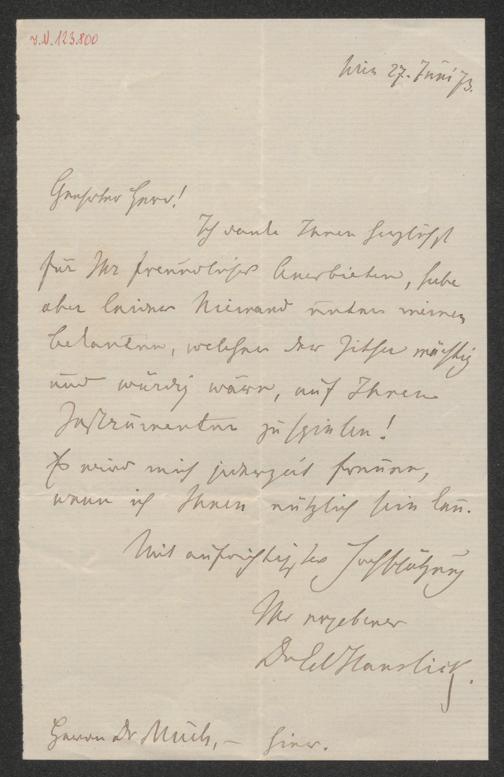 I.N. 123.800
Wien 27. Juni 73.
Geehrter Herr!
Ich danke Ihnen herzlichst
für Ihr freundliches Anerbieten, habe
aber leider Niemand unter meinen
Bekannten, welcher der Zither mächtig
und würdig wäre, auf Ihren
Instrumenten zu spielen!
Es wird mich jederzeit freuen,
wenn ich Ihnen nützlich sein kann.
Mit aufrichtigster Hochschätzung
Ihr ergebener
Dr Ed Hanslick.
Herrn Dr Much, – hier.